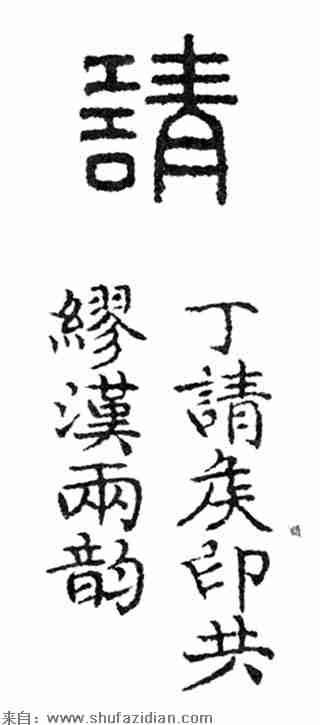 請
丁請矦印共
繆漢兩韵
来自：www.shufazidian.com